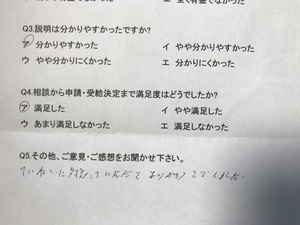 Q3.説明は分かりやすかったですか?
ア 分かりやすかった イ やや分かりやすかった
ウ やや分かりにくかった エ 分かりにくかった
Q4.相談から申請・受給決定まで満足度はどうでしたか?
ア 満足した イ やや満足した
ウ あまり満足しなかった エ 満足しなかった
Q5.その他、ご意見・ご感想をお聞かせ下さい。
ていねいに対応していただきてありがとうございました。